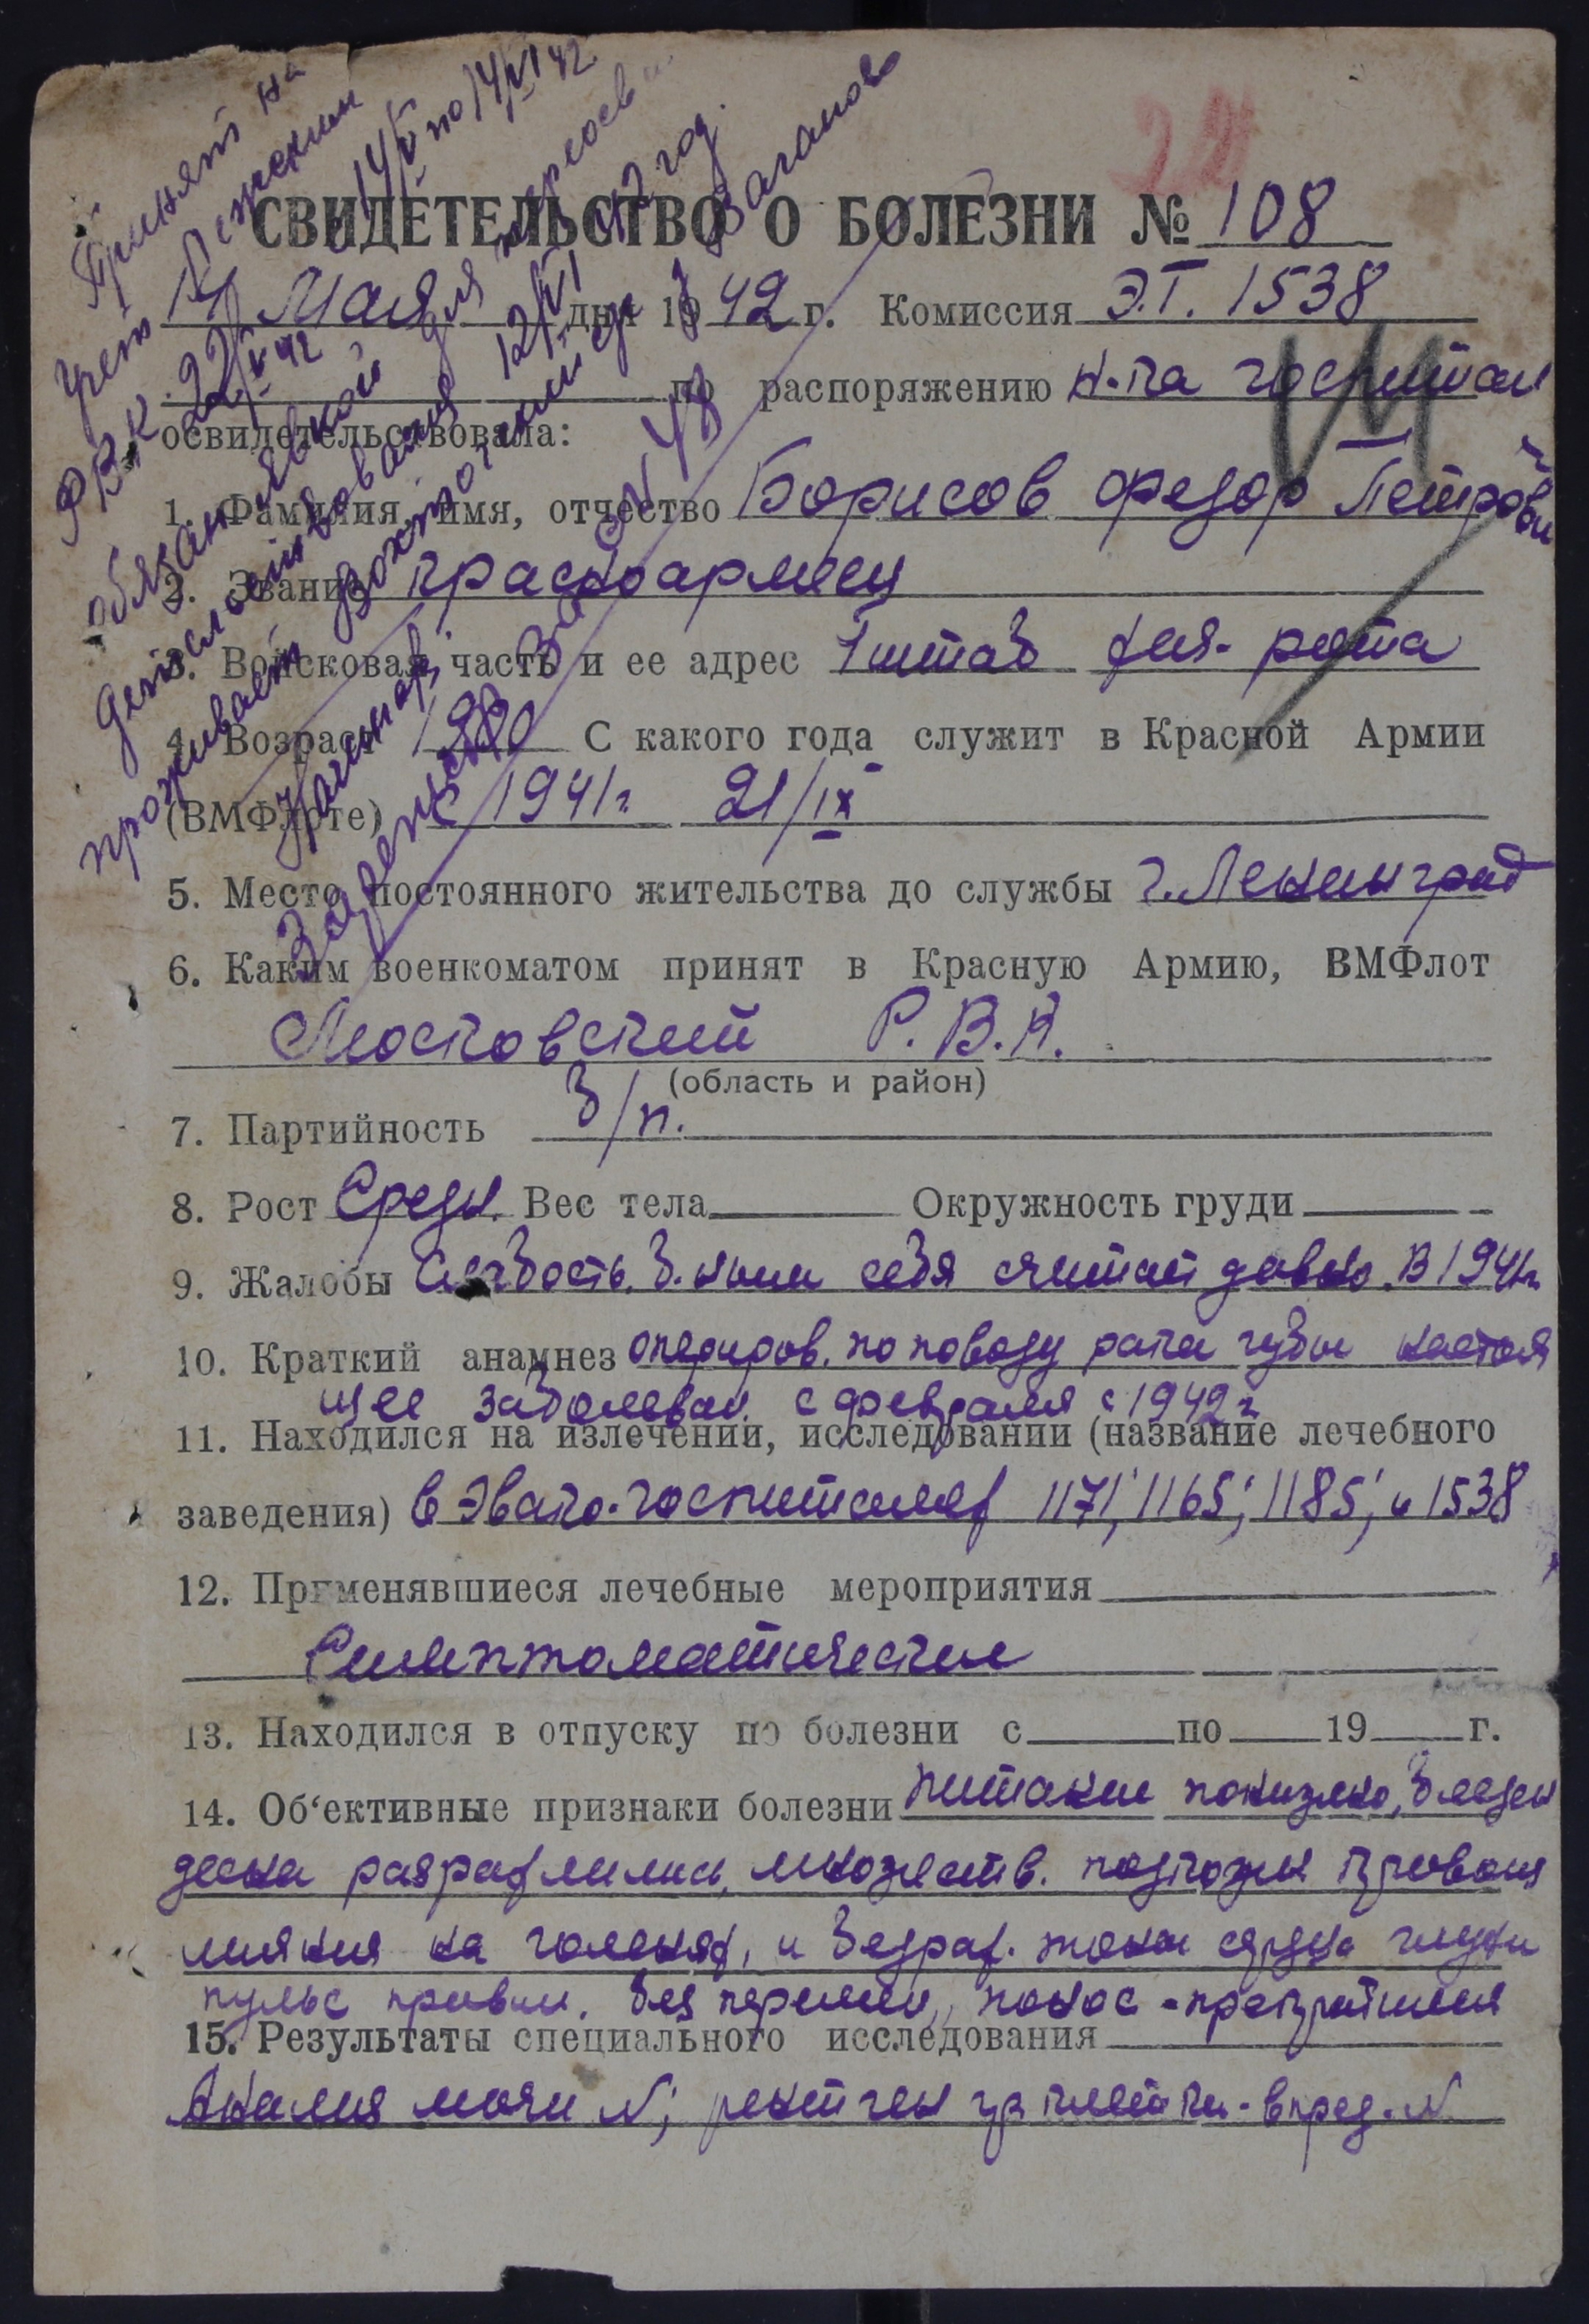 24
СВИДЕТЕЛЬСТВО О БОЛЕЗНИ № 108
14 Мая дня 1942 г. Комиссия Э.Г. 1538
по распоряжению н-ка госпиталя
освидетельствовала:
1. Фамилия, имя, отчество Борисов Федор Петрович
2. Звание красноармеец
3. Войсковая часть и ее адрес 1 штаб рота
4. Возраст С какого года служит в Красной Армии
(ВМФлоте) с 1941г 21/IX
5. Место постоянного жительства до службы г. Ленинград
6. Каким военкоматом принят в Красную Армию, ВМФлот
Московский Р.В.К.
(область и район)
7. Партийность б/п.
8. Рост Средн. Вес тела Окружность груди
9. Жалобы Слабость. б-ным себя считает давно. В 1941г
10. Краткий анамнез оперирован. по поводу рака губы настоя
щее заболеван. с февраля с 1942г
11. Находился на излечении, исследовании (название лечебного
заведения) в Эвако-госпиталях 1171; 1165; 1185; и 1538
12. Применявшиеся лечебные мероприятия
Симптоматические
13. Находился в отпуску по болезни с по 19 г.
14. Об'ективные признаки болезни питание понижено, бледен
десна разрыхлились, множеств. подкожн кровоиз
лияния на голенях, и бедрах. тоны сердца глухи
пульс правил. без перемен, понос - прекратился
15. Результаты специального исследования
Анализ мочи N; рентген гр клетки - в пред. N
Принят на
учет
РВК 22/V 42
14/V по 14/VI 42
обязан явкой для переосв
детельствования 12/VI 42 год.
проживает